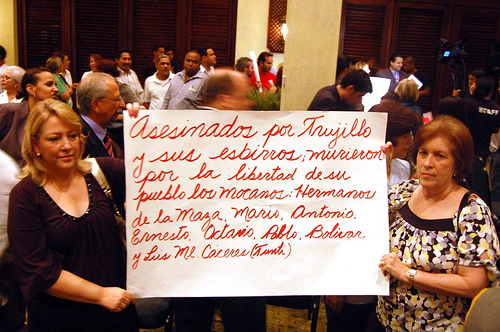 Asesinados por Trujillo
y sus esbirros; murieron
por la libertad de su
pueblo los mocanos: Hermanos
de la Maza, Mario, Antonio,
Ernesto, Octavio, Pablo, Bolívar
y Luis Ml. Cáceres (Tunti)
STAFF